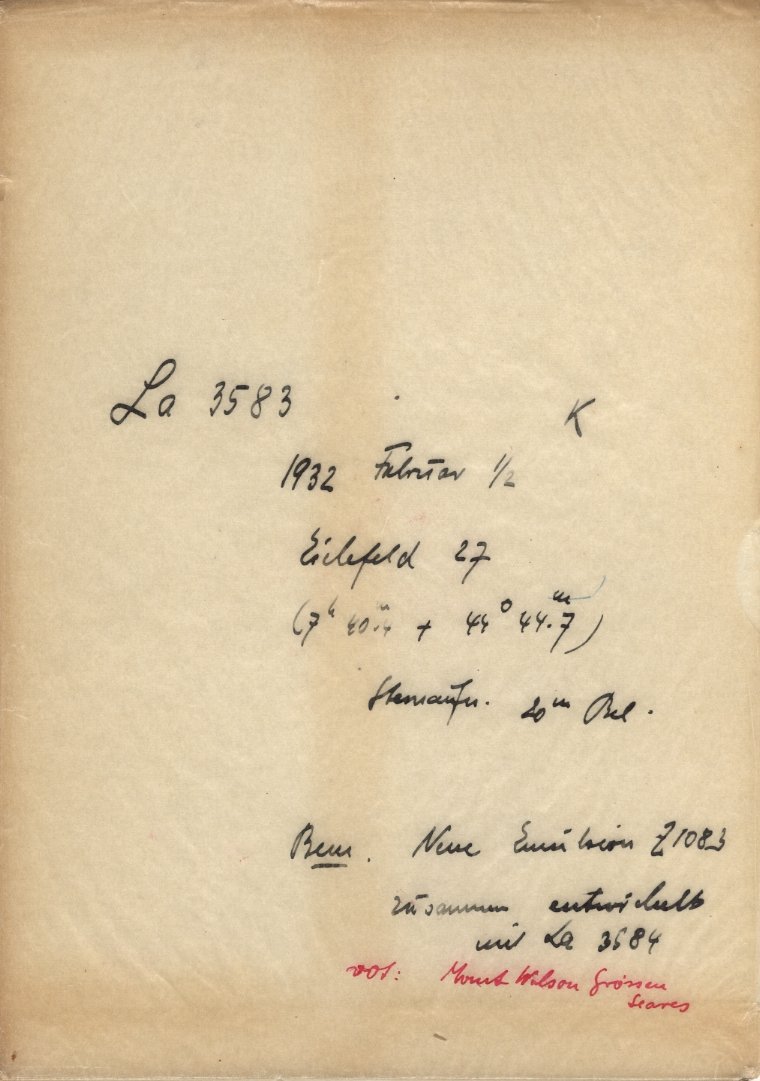 La 3583 K
1932 Februar 1/2
Eichfeld 27
(7h 40.m4 + 44° 44.m7)
Sternaufn. 20m Bel.
Bem. Neue Emulsion Z1083
zusammen entwickelt
mit La 3584
rot: Mount Wilson Grössen
Seares